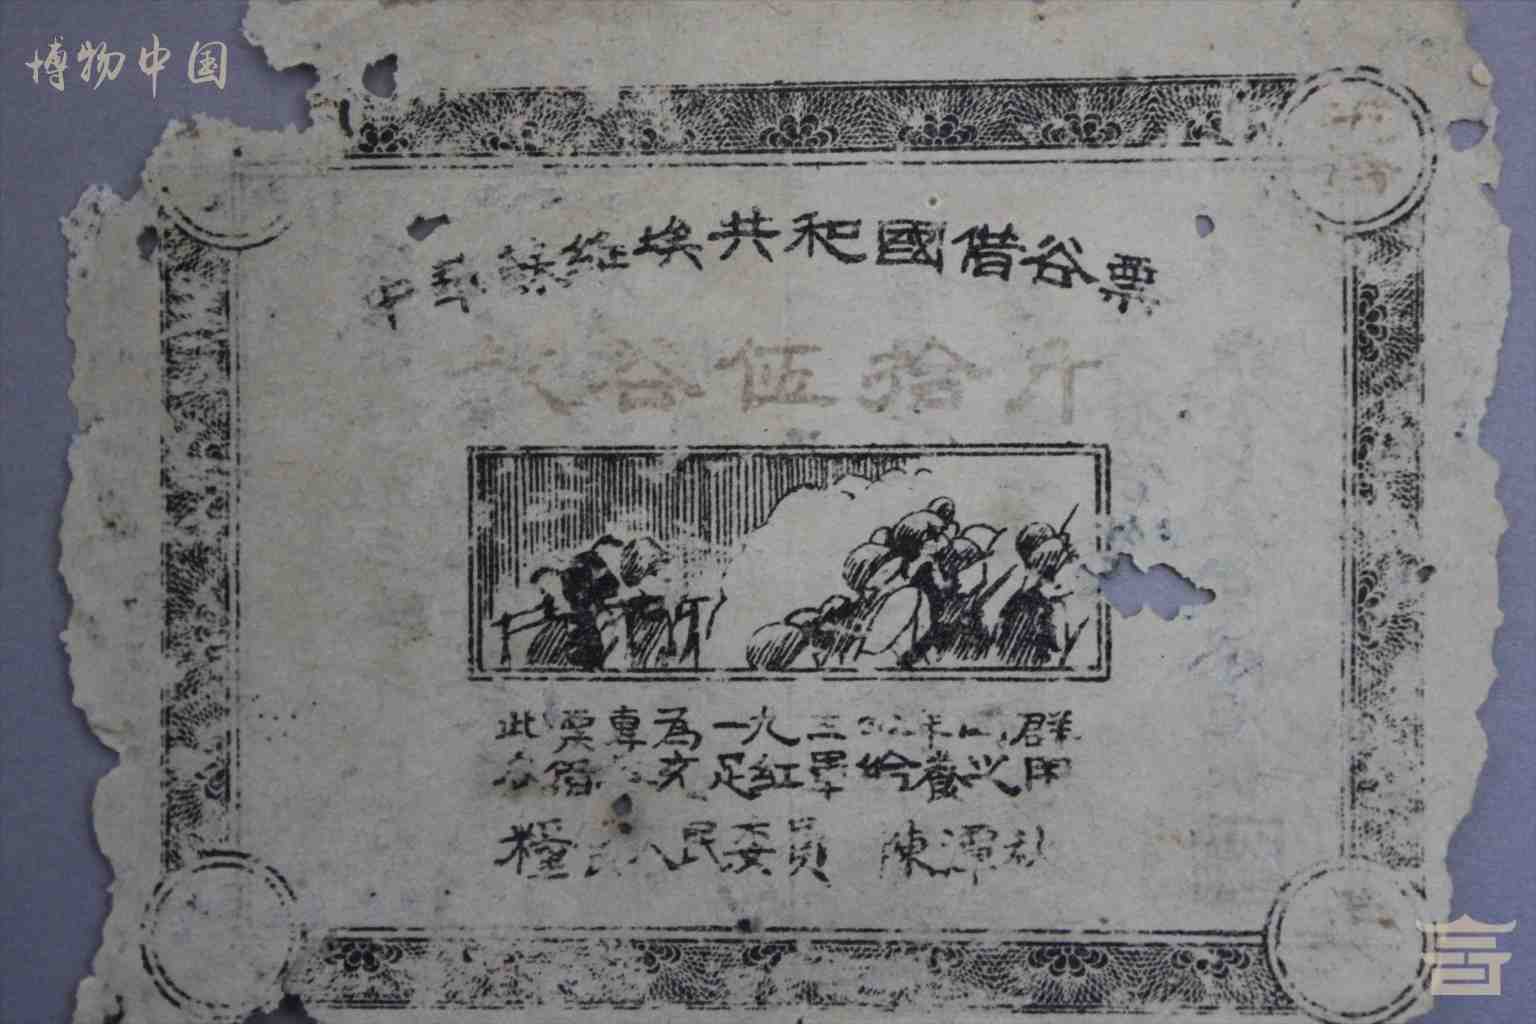 博物中国
中華蘇維埃共和國借谷票
谷伍拾斤
此票專為一九三年群
谷借充足紅軍給養之用
糧人民委員 陳潭秋